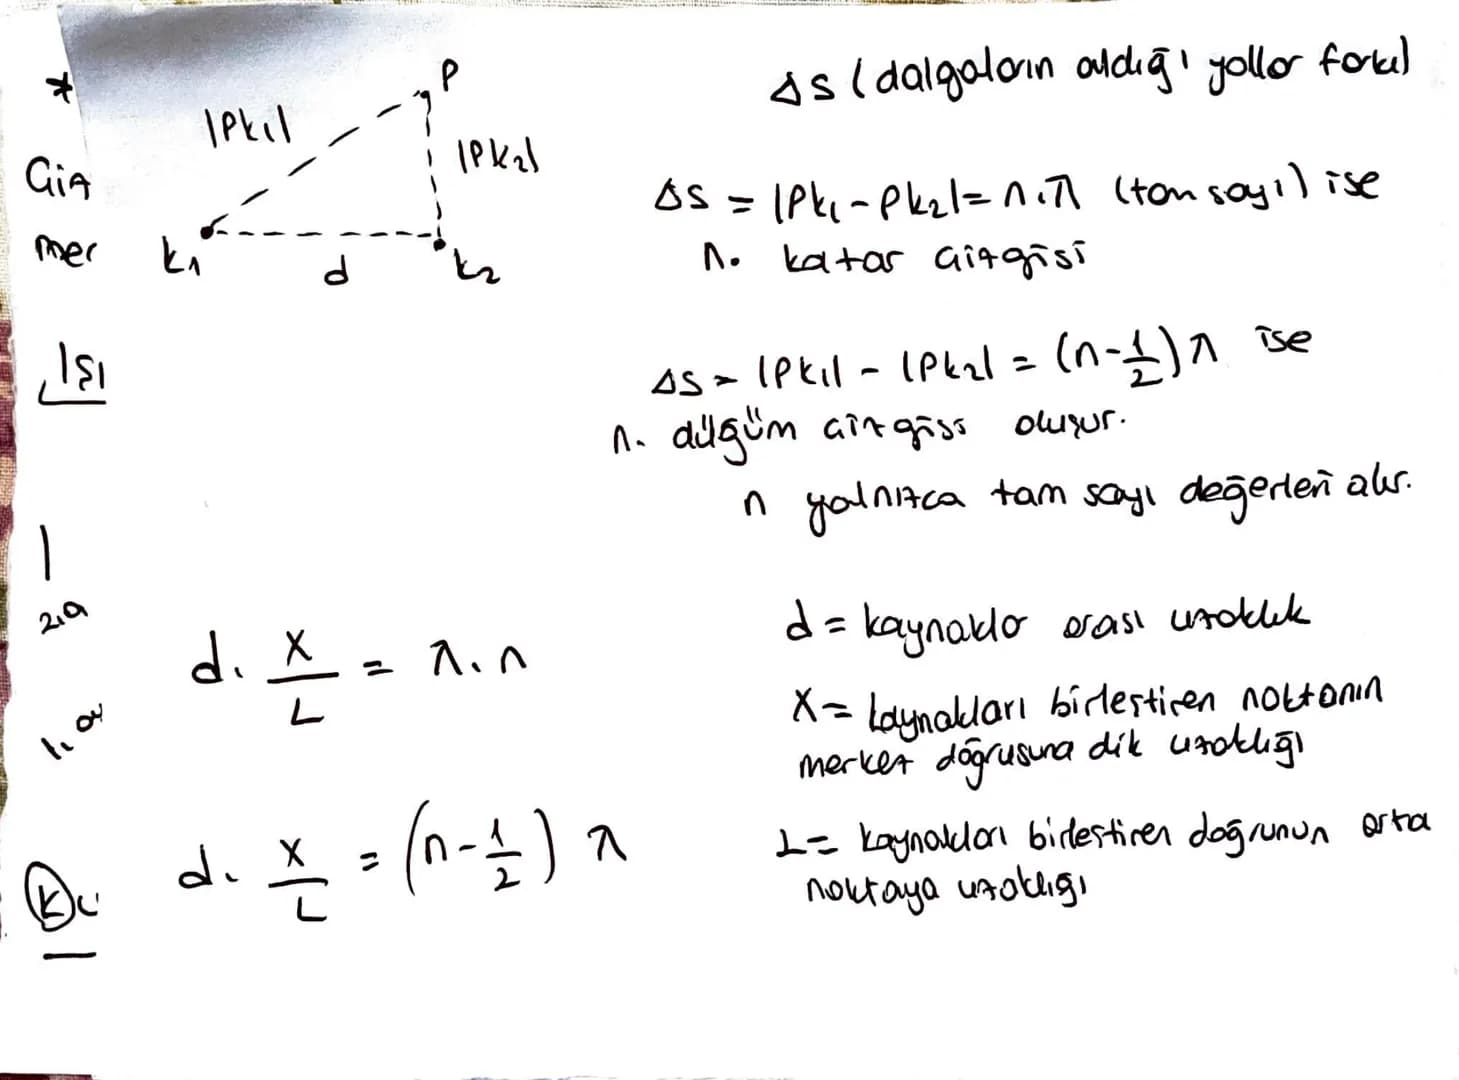 *
P
Δs (dalgaların aldığı yollar farkı)
|Pk₁|
|Pk₂|
Δs = |Pk₁ - Pk₂| = n.λ (tam sayı) ise
n. katar çizgisi
k₁
d
k₂
Çiz
mer
Δs = |Pk₁| - |Pk₂| = (n - 1/2) λ ise
n. düğüm çizgisi oluşur.
n yalnızca tam sayı değerleri alır.
d . x/L = λ . n
d = kaynakla arası uzaklık
x = kaynakları birleştiren noktanın
merkez doğrusuna dik uzaklığı
d . x/L = (n - 1/2) λ
L = kaynakları birleştiren doğrunun orta
noktaya uzaklığı